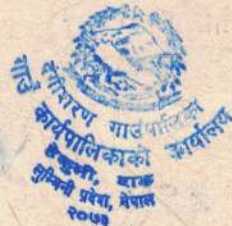 बंगीशरण गाउँपालिका
गाउँ कार्यपालिकाको कार्यालय
हेकुली, दाङ
लुम्बिनी प्रदेश, नेपाल
२०७३